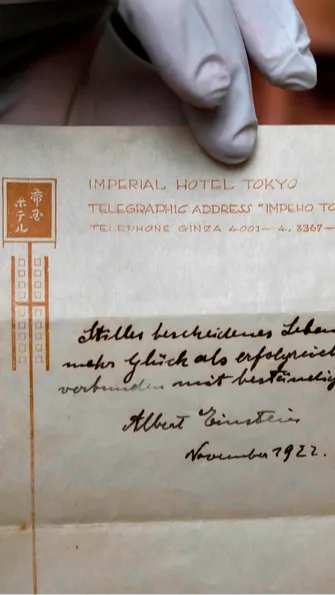 帝国
ホテル
IMPERIAL HOTEL TOKYO
TELEGRAPHIC ADDRESS "IMPEHO TO
TELEPHONE GINZA 4001—4, 3367—
Stilles bescheidenes Leben
mehr Glück als erfolgreich
verbunden mit beständig
Albert Einstein
November 1922.